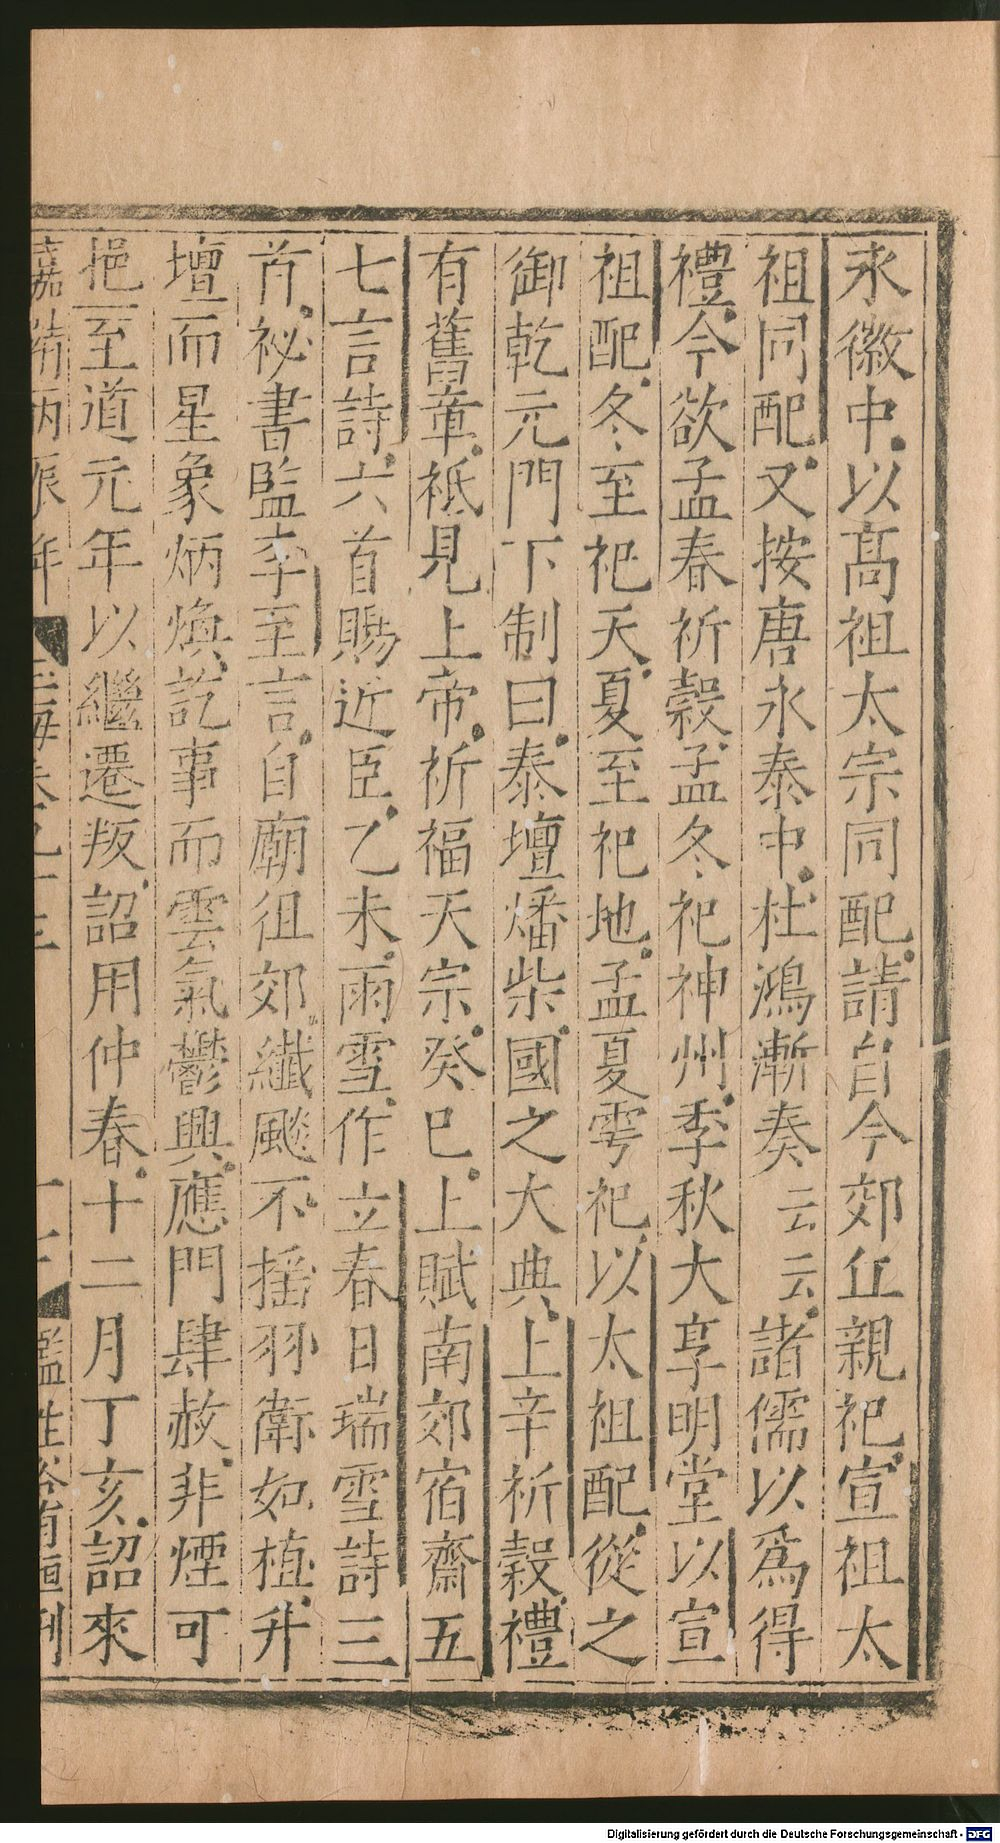 永徽中以高祖太宗同配請自今郊丘親祀宣祖太
祖同配又按唐永泰中杜鴻漸奏云云諸儒以爲得
禮今欲孟春祈穀孟冬祀神州季秋大享明堂以宣
祖配冬至祀天夏至祀地孟夏雩祀以太祖配從之
御乾元門下制曰泰壇燔柴國之大典上辛祈穀禮
有舊章祗見上帝祈福天宗癸巳上賦南郊宿齋五
七言詩六首賜近臣乙未雨雪作立春日瑞雪詩三
首祕書監李至言自廟徂郊纖颷不揺羽衛如植升
壇而星象炳煥訖事而雲氣鬱興應門肆赦非煙可
挹至道元年以繼遷叛詔用仲春十二月丁亥詔來
嘉靖丙辰年 玉海卷九十三 二十 監生
Digitalisierung gefördert durch die Deutsche Forschungsgemeinschaft - DFG